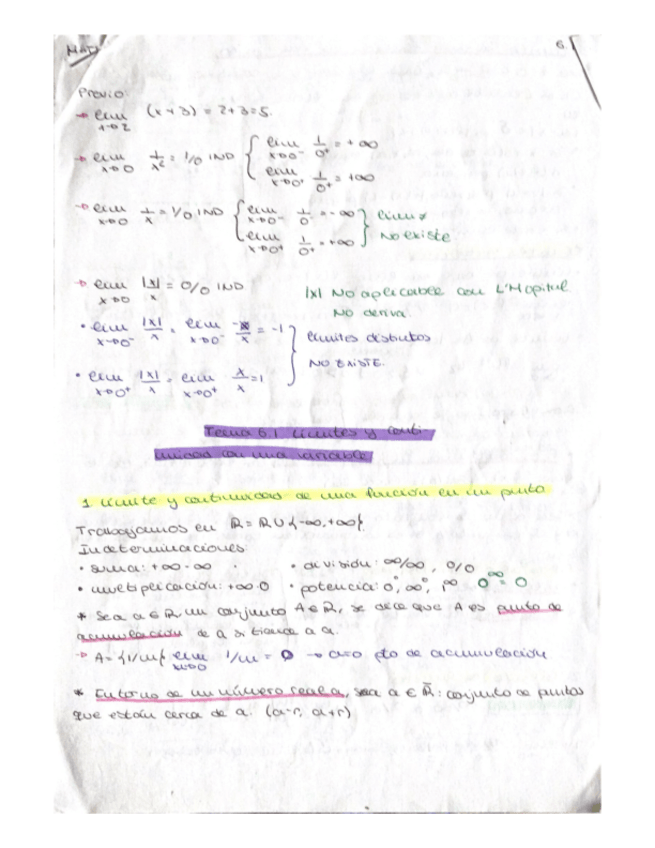 Mat 6.1
Previo:
→ lim x→2 (x+3) = 2+3=5.
→ lim x→0 1/x² = 1/0 IND { lim x→0⁻ 1/0⁺ = +∞
lim x→0⁺ 1/0⁺ = +∞
→ lim x→0 1/x = 1/0 IND { lim x→0⁻ 1/0⁻ = -∞ } lim ≠
lim x→0⁺ 1/0⁺ = +∞ No existe
→ lim x→0 |x|/x = 0/0 IND |x| No aplicable con L'Hopital.
No deriva.
• lim x→0⁻ |x|/x = lim x→0⁻ -x/x = -1 } límites distintos
• lim x→0⁺ |x|/x = lim x→0⁺ x/x = 1 NO EXISTE.
Tema 6.1 Límites y conti-
nuidad con una variable
1 límite y continuidad de una función en un punto
Trabajamos en R̄ = R ∪ {-∞, +∞}.
Indeterminaciones:
• suma: +∞ -∞ • división: ∞/∞, 0/0
• multiplicación: +∞·0 • potencia: 0⁰, ∞⁰, 1^∞ 0^∞ = 0
* Sea a ∈ R̄ un conjunto A ∈ R, se dice que A es punto de
acumulación de a si tiende a a.
→ A = {1/n} lim n→∞ 1/n = 0 → a=0 pto de acumulación
* Entorno de un número real a, sea a ∈ R̄: conjunto de puntos
que están cerca de a. (a-r, a+r)